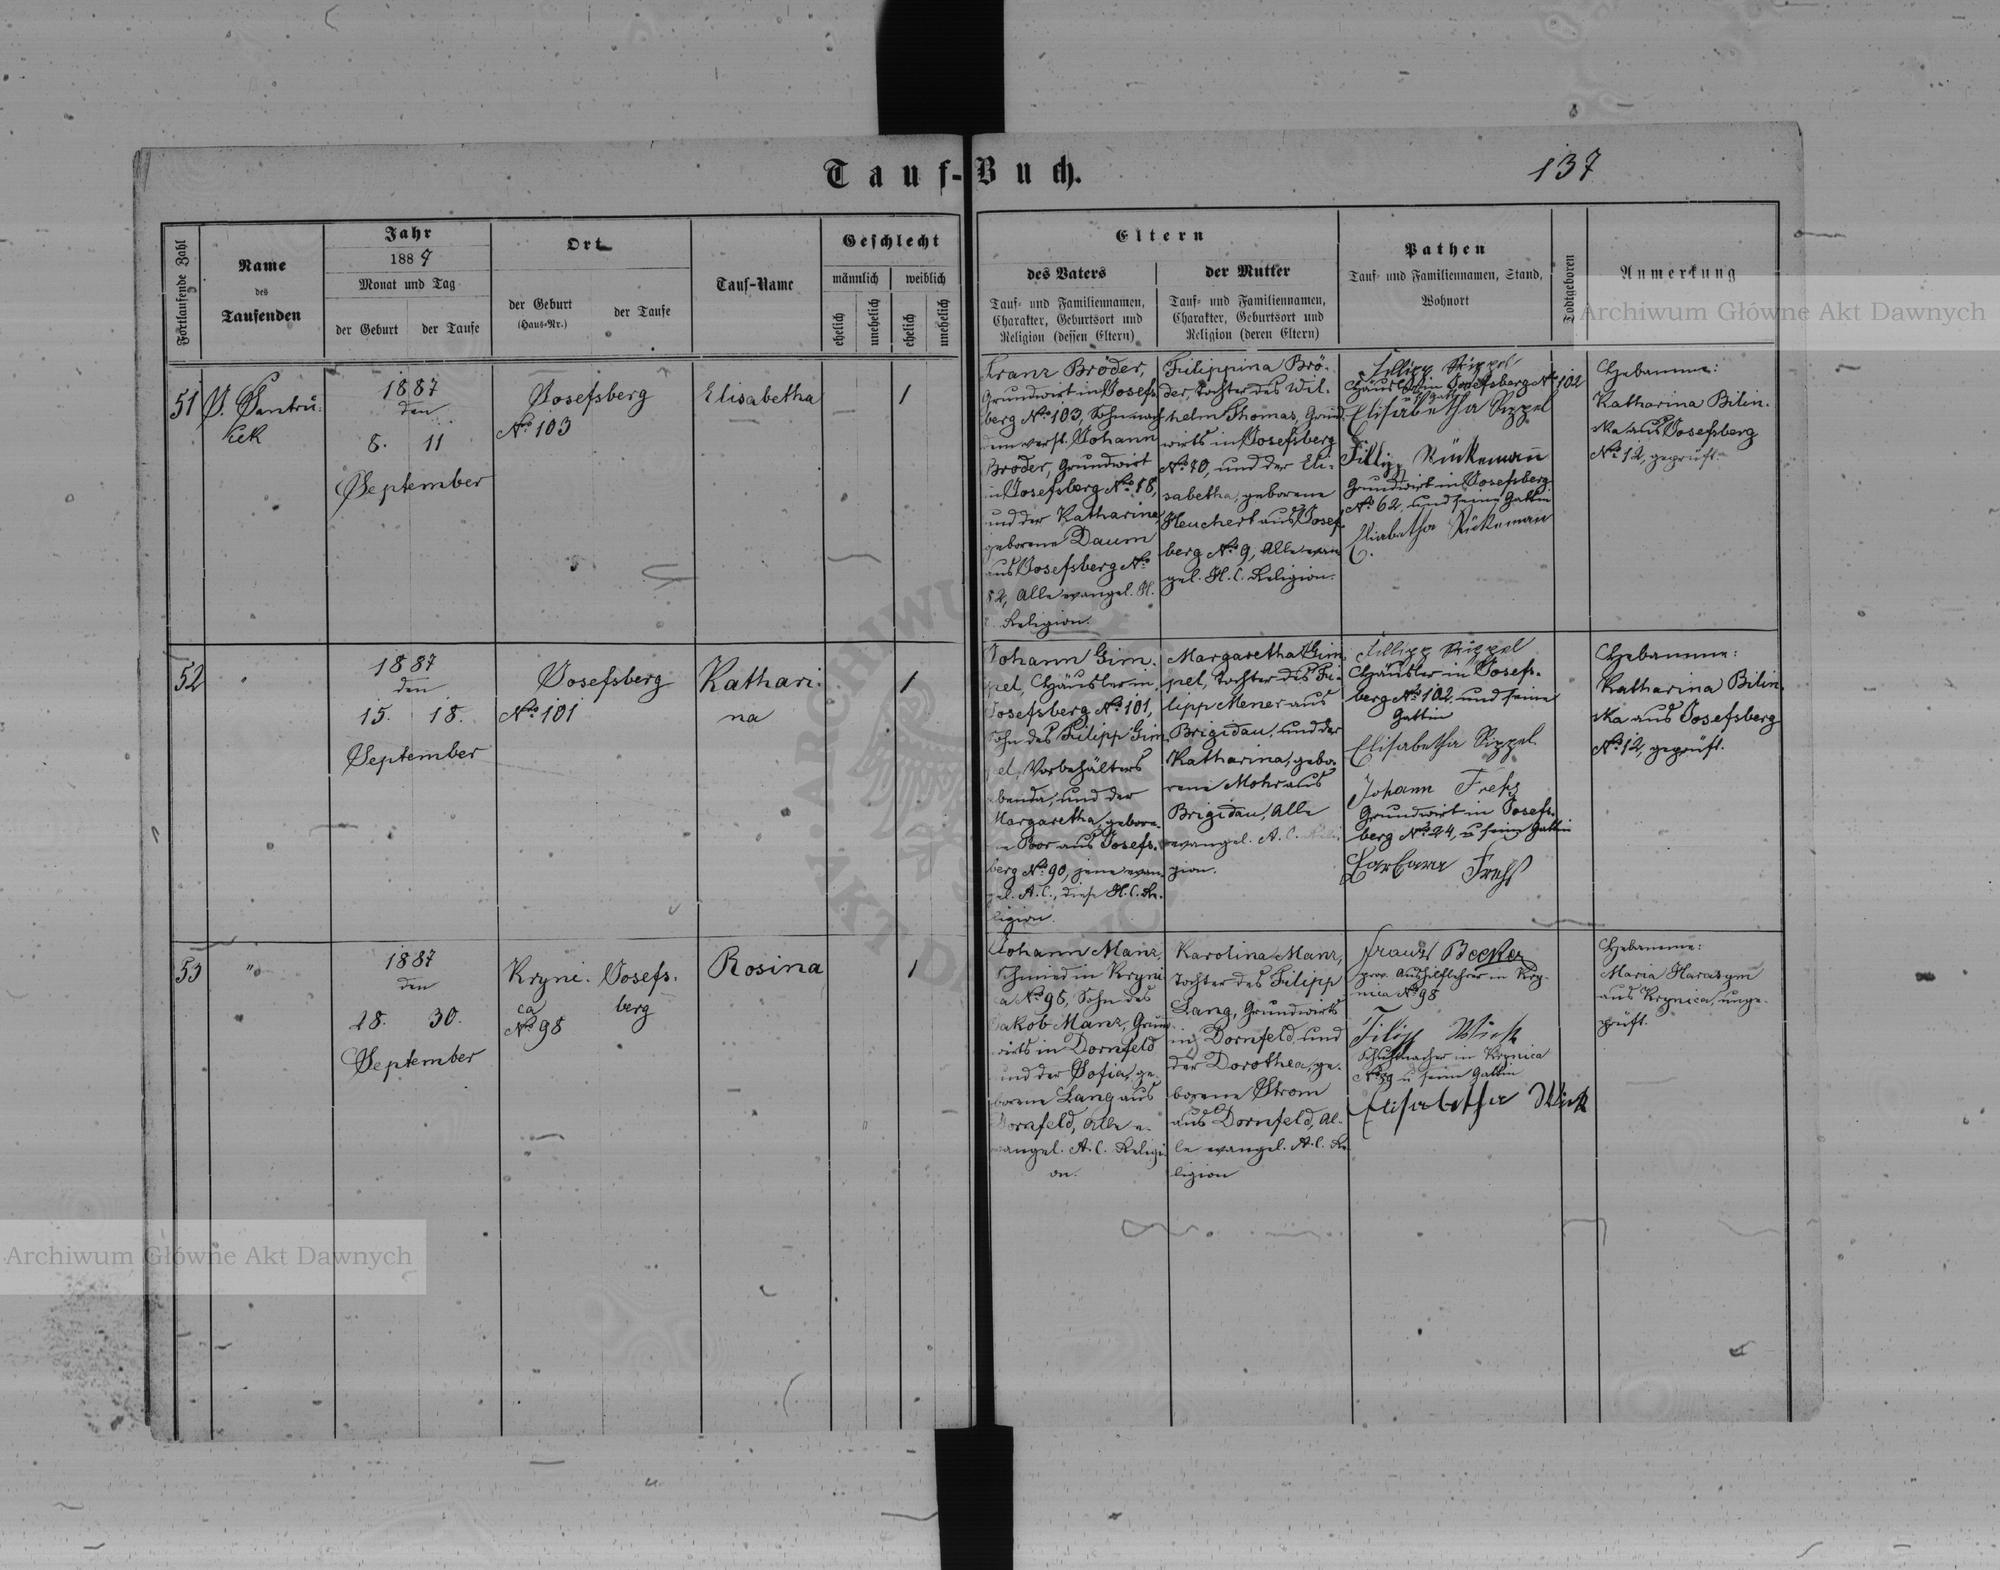 Tauf-Buch.
137
Fortlaufende Zahl
Name
des
Taufenden
Jahr
1887
Monat und Tag
der Geburt
der Taufe
Ort
der Geburt
(Haus-Nr.)
der Taufe
Tauf-Name
Geschlecht
männlich
weiblich
ehelich
unehelich
ehelich
unehelich
Eltern
des Vaters
Tauf- und Familiennamen,
Charakter, Geburtsort und
Religion (dessen Eltern)
der Mutter
Tauf- und Familiennamen,
Charakter, Geburtsort und
Religion (deren Eltern)
Pathen
Tauf- und Familiennamen, Stand,
Wohnort
Todtgeboren
Anmerkung
Archiwum Główne Akt Dawnych
51
1887
den
8. 11
September
Josefsberg
No 103
Elisabetha
1
Franz Bröder,
Grundwirt in Josefs-
berg No 103, Sohn nach
dem verst. Johann
Bröder, Grundwirt
in Josefsberg No 18,
und der Katharina
geborene Daum
aus Josefsberg No
52, Alle evangel. H.
Religion.
Filippina Brö-
der, Tochter des Wil-
helm Thomas, Grund-
wirts in Josefsberg
No 70, und der Eli-
sabetha, geborene
Heuchert aus Josefs-
berg No 9, Alle evan
gel. H. C. Religion.
Fillipp Rippel
Häusler in Josefsberg No 102
Elisabetha Rippel
Fillipp Rückemann
Grundwirt in Josefsberg
No 62, und seine Gattin
Elisabetha Rückemann
Hebamme:
Katharina Bilin-
ska aus Josefsberg
No 12, geprüft.
52
1887
den
15. 18.
September
Josefsberg
No 101
Kathari-
na
1
Johann Gim-
pel, Häusler in
Josefsberg No 101,
Sohn des Filipp Gim-
pel, Vorbehälters
ebenda, und der
Margaretha, gebore-
ne Poor aus Josefs-
berg No 90, jene evan-
gel. A. C., diese H. C. Re-
ligion.
Margaretha Gim-
pel, Tochter des Fi-
lipp Mener aus
Brigidau, und der
Katharina, gebo-
rene Mohr aus
Brigidau, Alle
evangel. A. C. Reli-
gion.
Fillipp Rippel
Häusler in Josefs-
berg No 102 und seine
Gattin
Elisabetha Rippel
Johann Frehs
Grundwirt in Josefs-
berg No 24, u seine Gattin
Barbara Frehs
Hebamme:
Katharina Bilin-
ska aus Josefsberg
No 12, geprüft.
53
"
1887
den
28. 30.
September
Kryni- Josefs-
ca berg
No 98
Rosina
1
Johann Manz,
Schmied in Kryni
ca No 98, Sohn des
Jakob Manz, Grund-
wirts in Dornfeld
und der Sofia, ge-
borene Lang aus
Dornfeld, Alle e-
vangel. A. C. Religi-
on.
Karolina Manz,
Tochter des Filipp
Lang, Grundwirts
in Dornfeld, und
der Dorothea, ge-
borene Strom
aus Dornfeld, Al-
le evangel. A. C. Re-
ligion
Franz Becker
prov. Aushilfslehrer in Kry-
nica No 98
Filipp Wick
Schuhmacher in Krynica
No 39 u seine Gattin
Elisabetha Wick
Hebamme:
Maria Harasym
aus Krynica, unge-
prüft.
Archiwum Główne Akt Dawnych